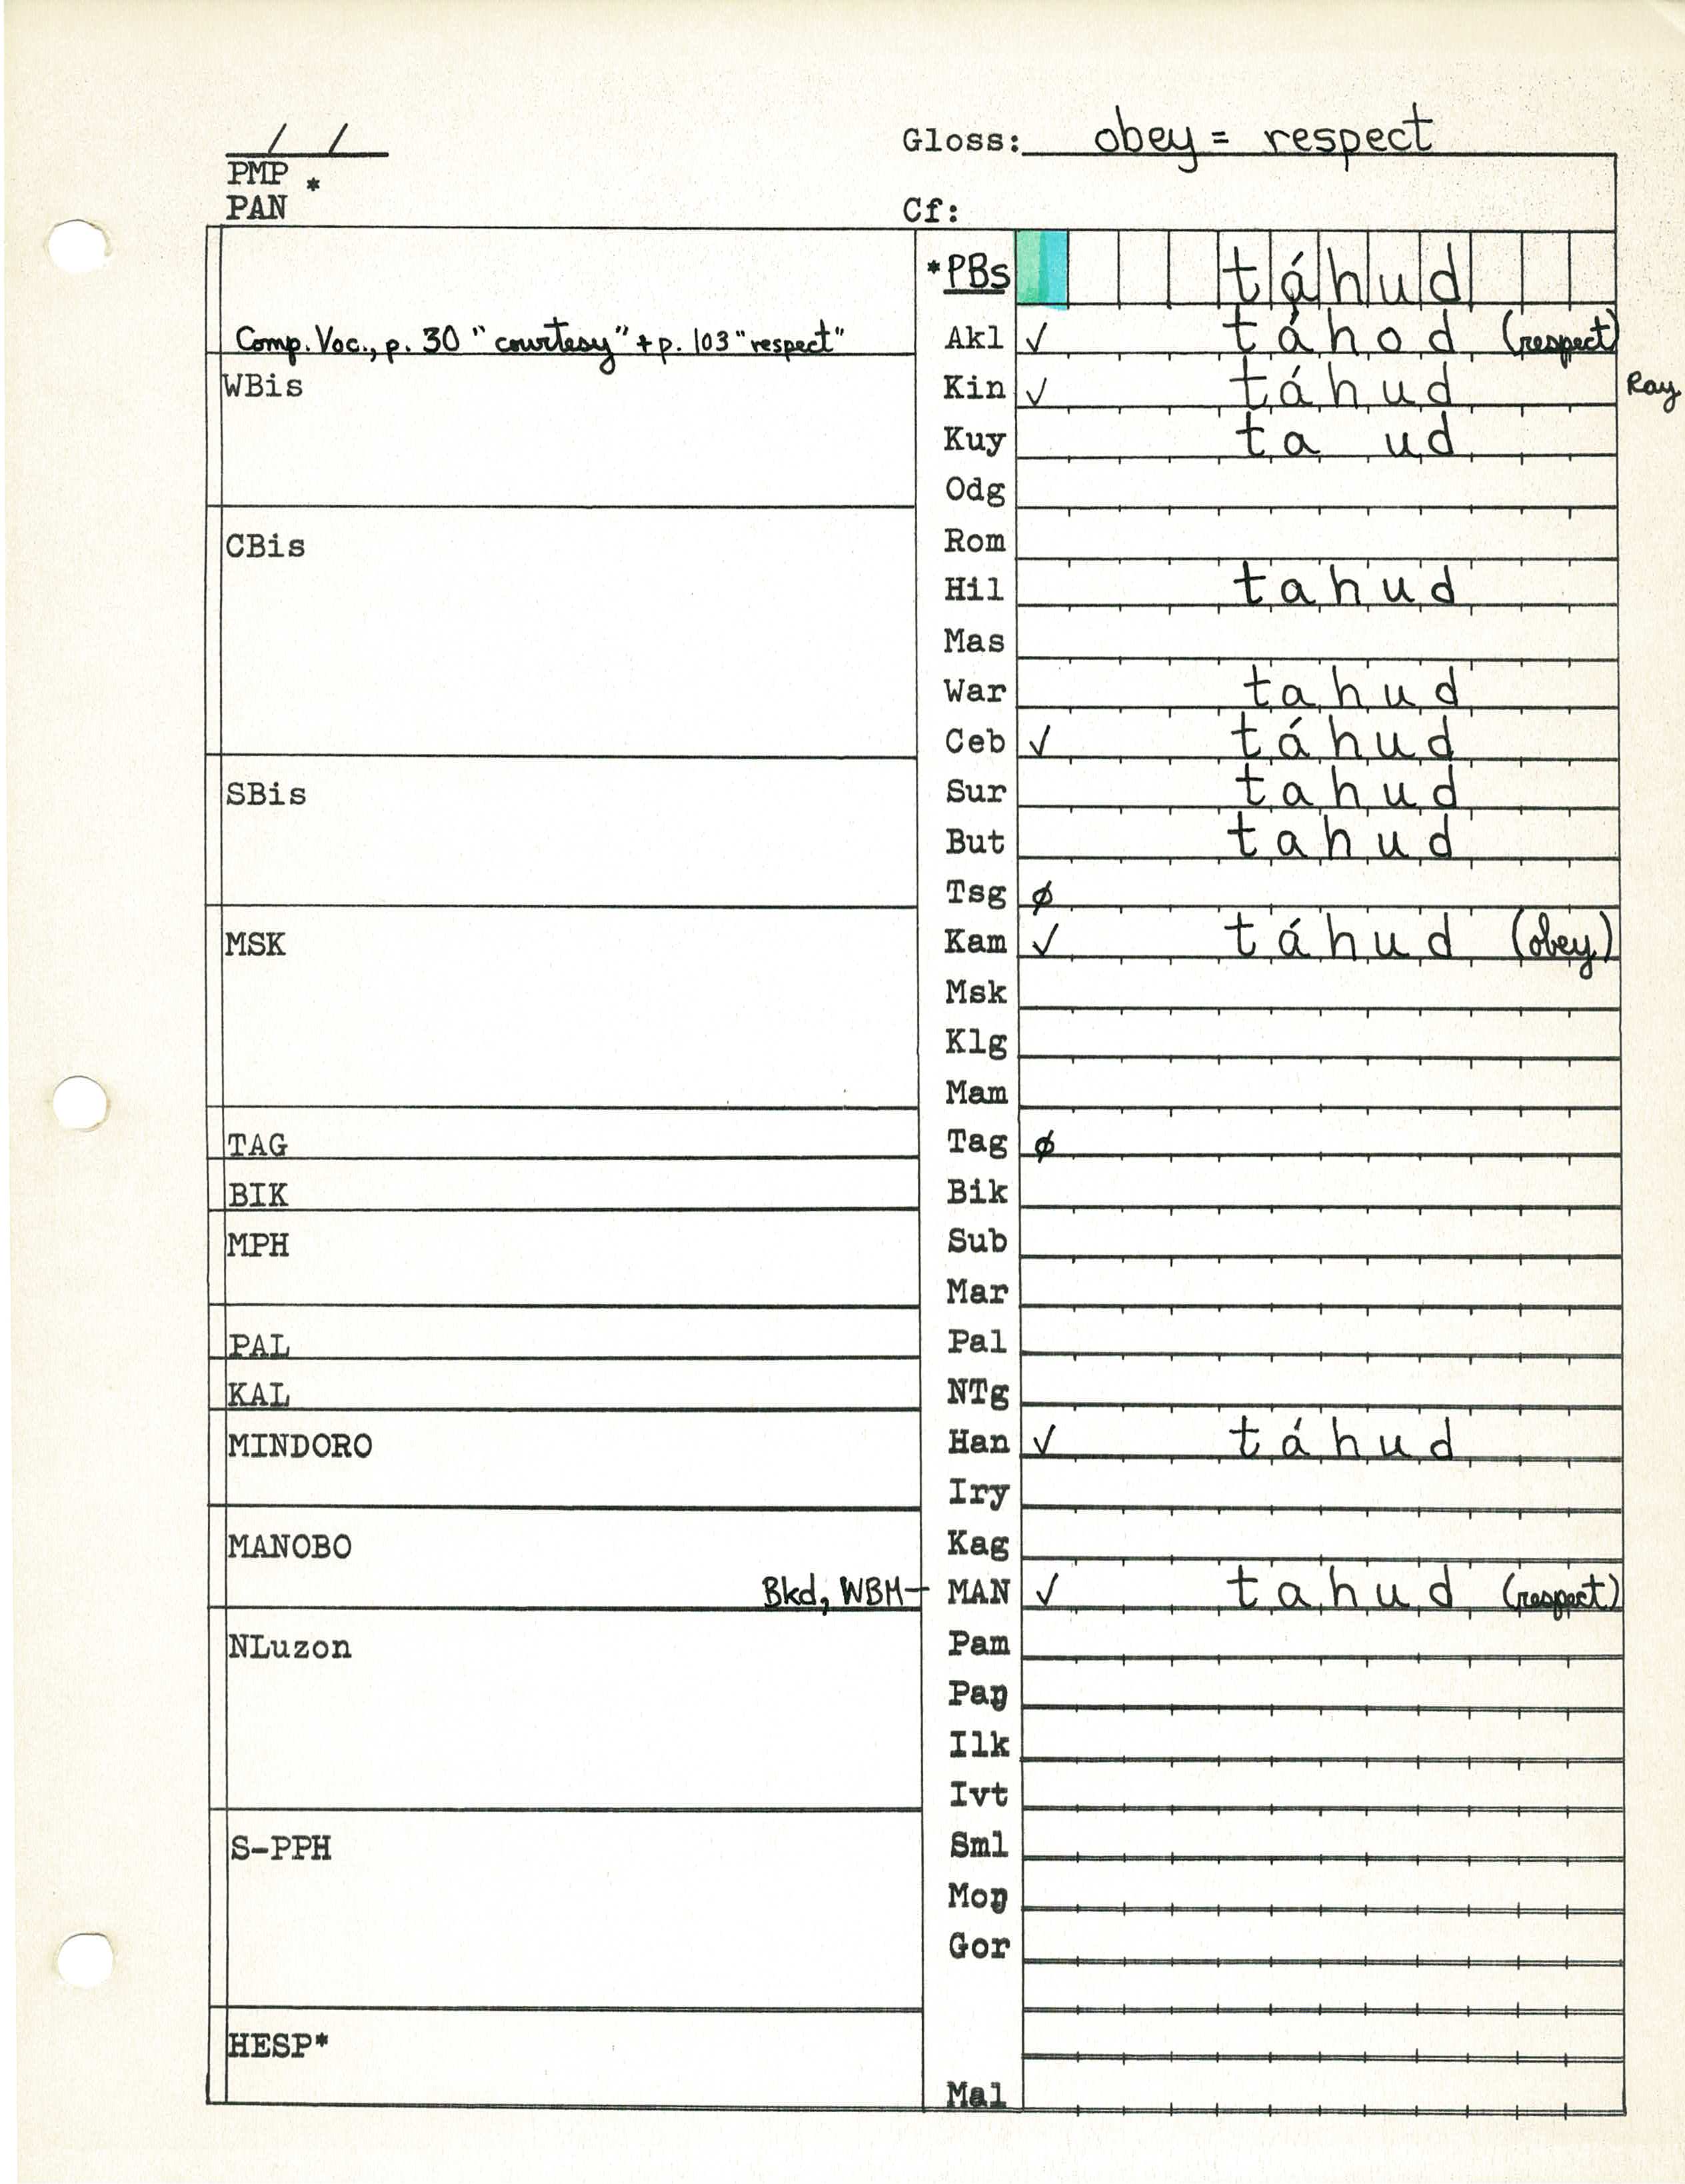 / /
Gloss: obey = respect
PMP *
PAN
Cf:
*PBs táhud
Comp. Voc., p. 30 "courtesy" + p. 103 "respect"
Akl ✓ táhod (respect)
WBis
Kin ✓ táhud Ray
Kuy ta ud
Odg
CBis
Rom
Hil tahud
Mas
War tahud
Ceb ✓ táhud
SBis
Sur tahud
But tahud
Tsg ø
MSK
Kam ✓ táhud (obey)
Msk
Klg
Mam
TAG
Tag ø
BIK
Bik
MPH
Sub
Mar
PAL
Pal
KAL
NTg
MINDORO
Han ✓ táhud
Iry
MANOBO
Kag
Bkd, WBM— MAN ✓ tahud (respect)
NLuzon
Pam
Paŋ
Ilk
Ivt
S-PPH
Sml
Moŋ
Gor
HESP*
Mal